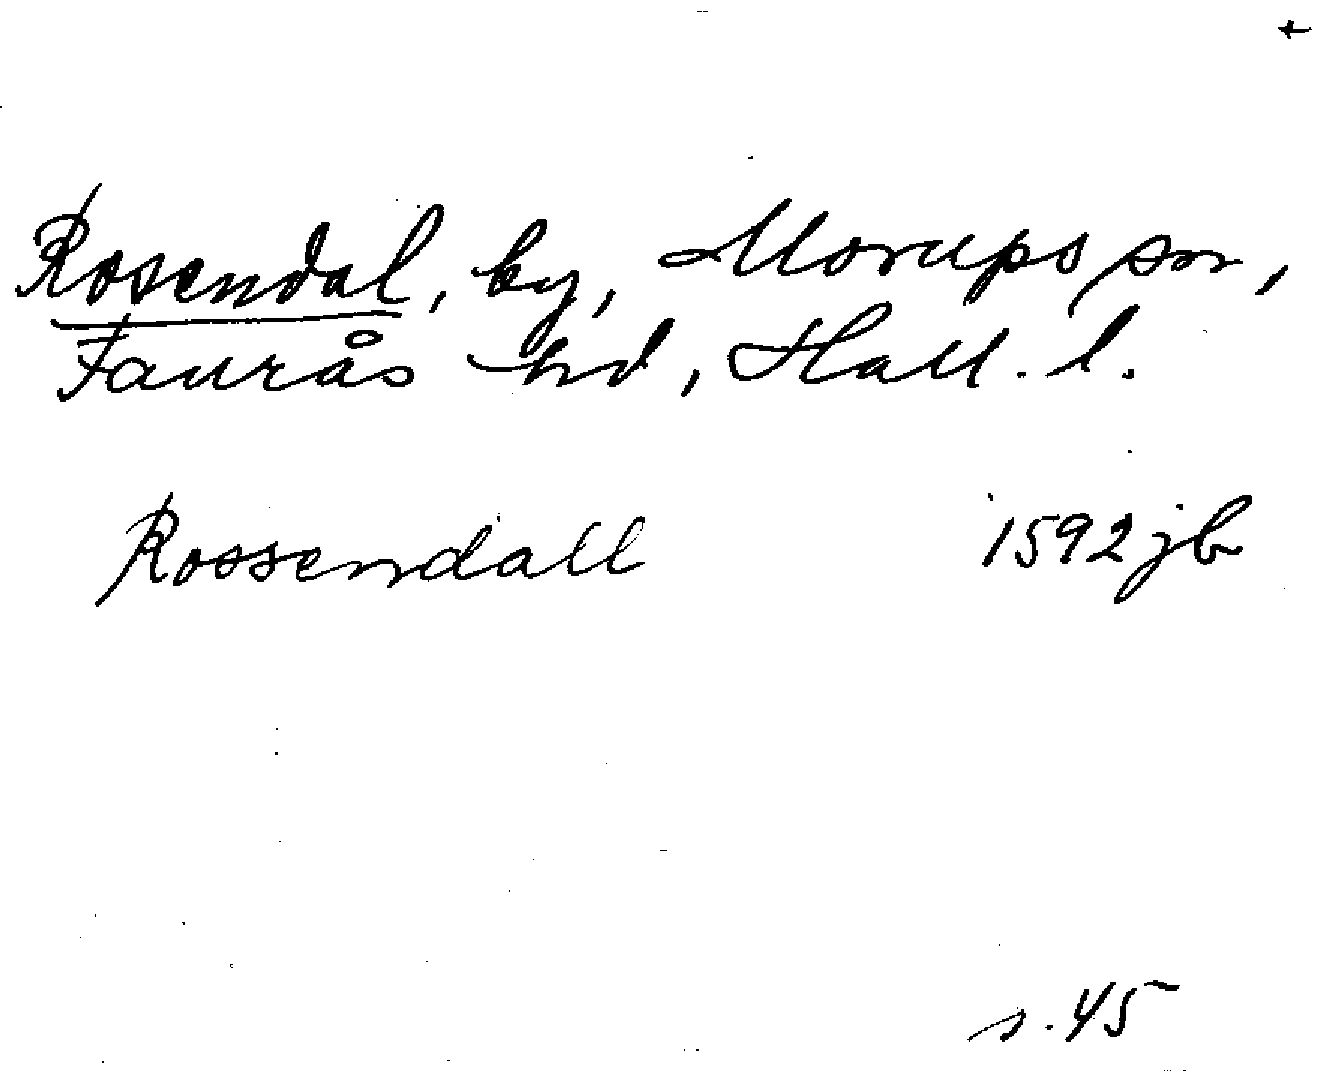 +
Rosendal, by, Morups sn,
Faurås hd, Hall. l.
Rossendall 1592 jb
s. 45